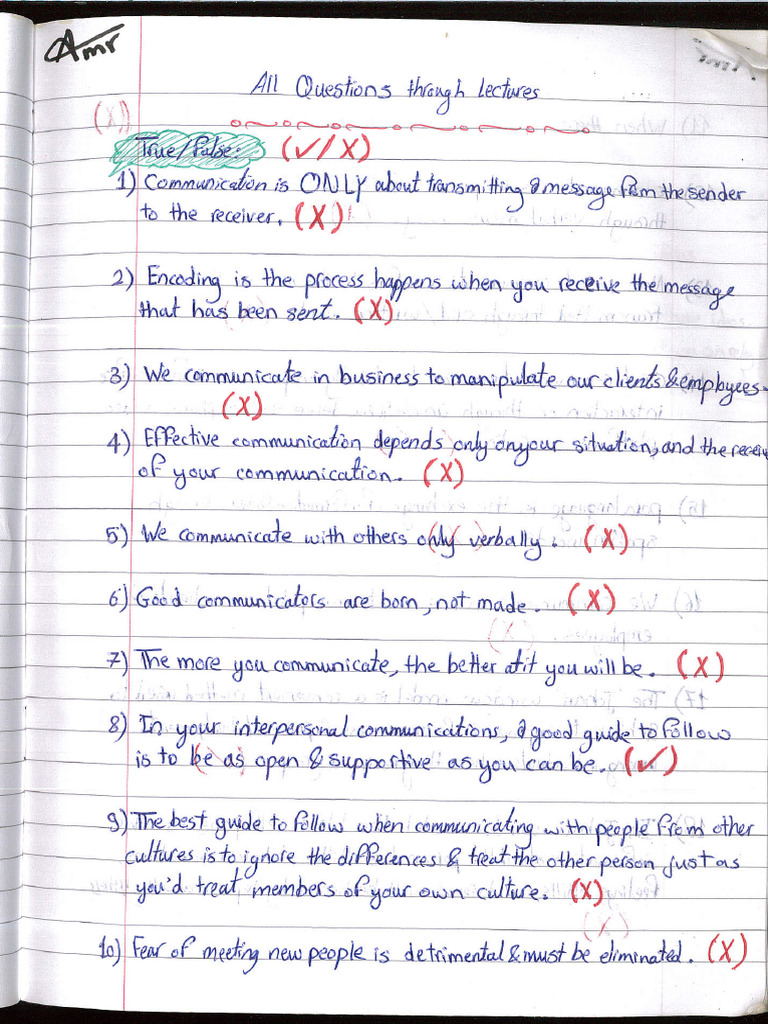 Amr
All Questions through lectures
True/False: (✓/X)
1) Communication is ONLY about transmitting a message from the sender
to the receiver. (X)
2) Encoding is the process happens when you receive the message
that has been sent. (X)
3) We communicate in business to manipulate our clients & empbyees.
(X)
4) Effective communication depends only on your situation, and the receiv
of your communication. (X)
5) We communicate with others only verbally. (X)
6) Good communicators are born, not made. (X)
7) The more you communicate, the better at it you will be. (X)
8) In your interpersonal communications, a good guide to follow
is to be as open & supportive as you can be. (✓)
9) The best guide to follow when communicating with people from other
cultures is to ignore the differences & treat the other person just as
you'd treat members of your own culture. (X)
10) Fear of meeting new people is detrimental & must be eliminated. (X)